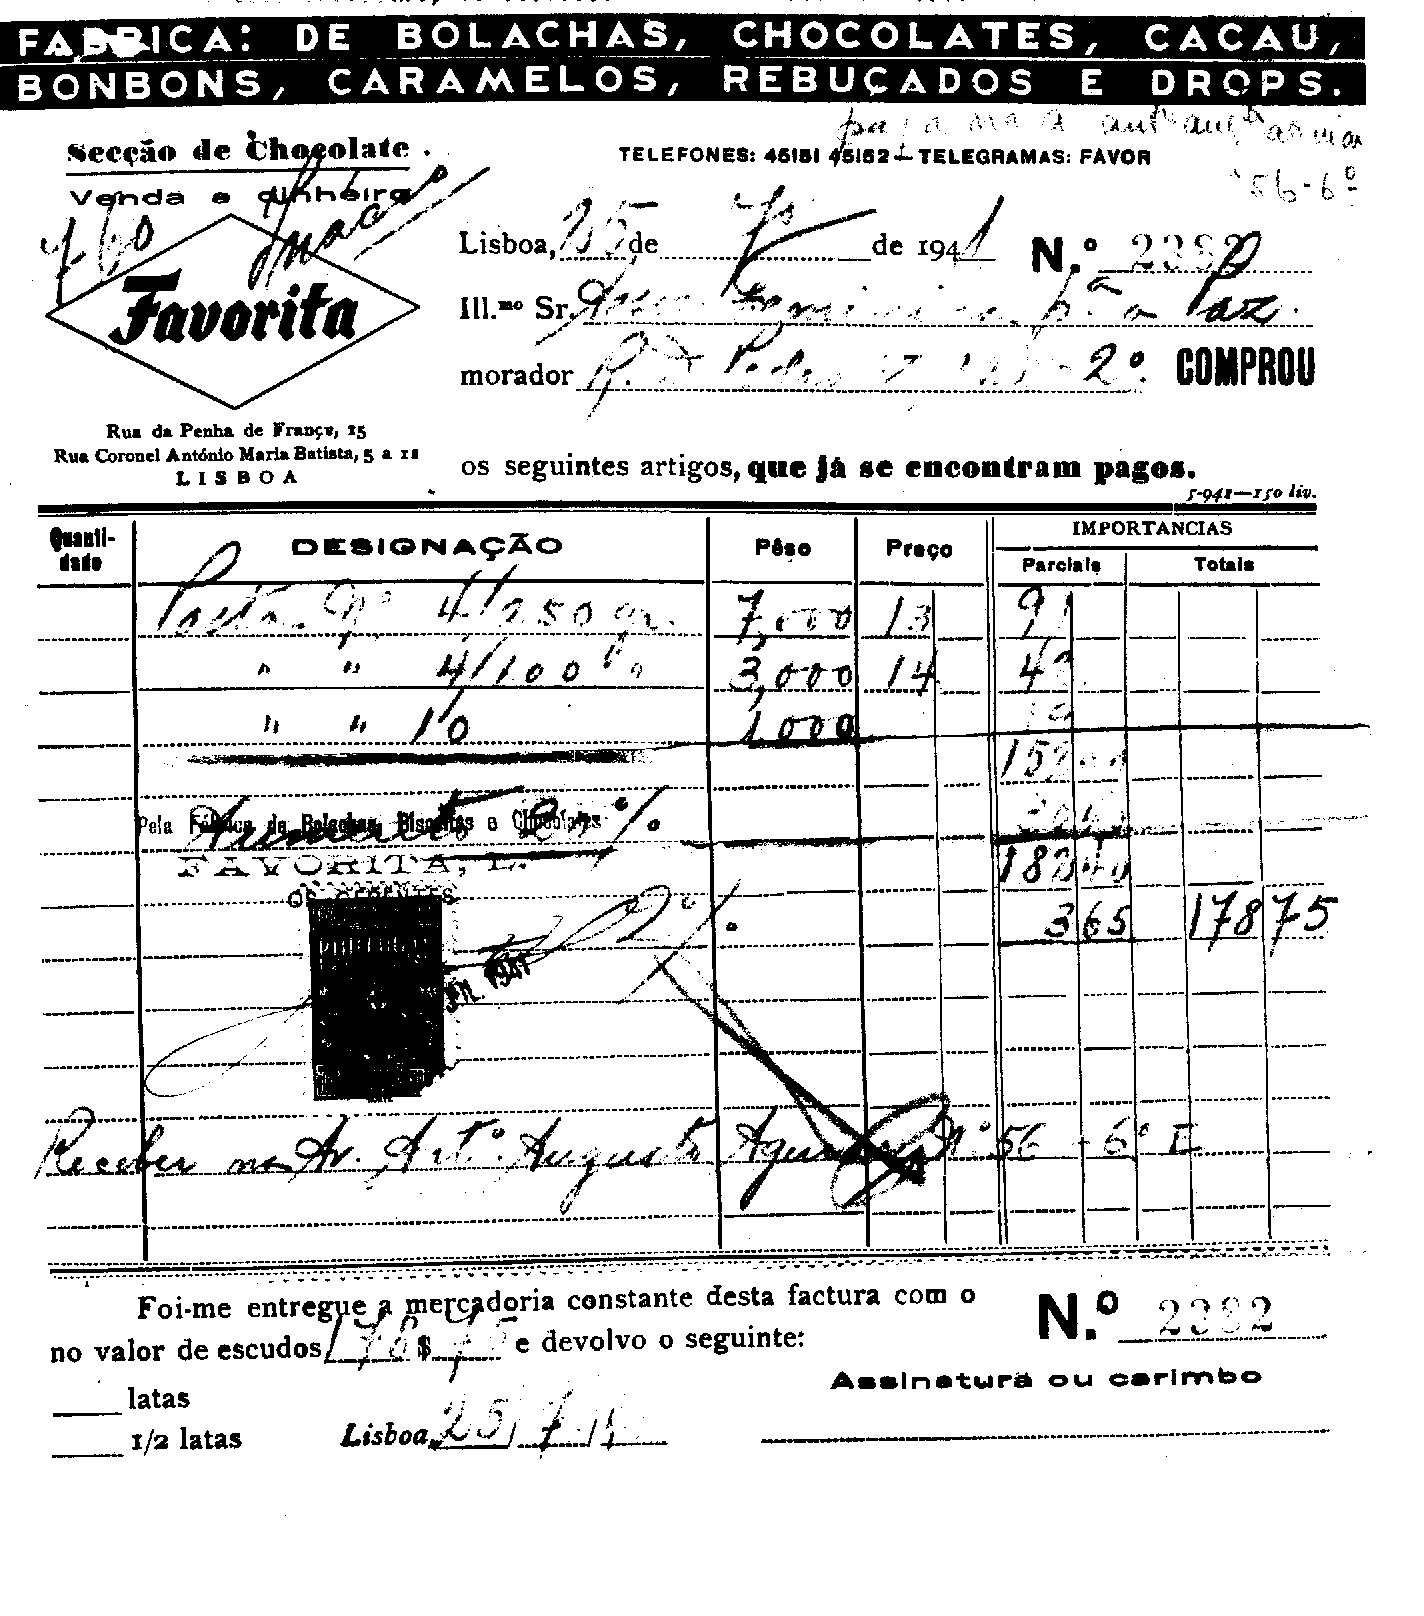 FABRICA: DE BOLACHAS, CHOCOLATES, CACAU,
BONBONS, CARAMELOS, REBUÇADOS E DROPS.
Secção de Chocolate.
TELEFONES: 45151 45152 — TELEGRAMAS: FAVOR
56-6º
Venda a dinheiro
Lisboa, 25 de 7 de 1941 N.º 2382
Favorita
Ill.mo Sr. Paz
morador R. D. Pedro 2º. COMPROU
Rua da Penha de França, 15
Rua Coronel António Maria Batista, 5 a 11
LISBOA
os seguintes artigos, que já se encontram pagos.
5-941—150 liv.
Quantidade DESIGNAÇÃO Pêso Preço IMPORTANCIAS
Parciais Totais
Nº 4/250 gr. 7,000 13 91
" " 4/100 " 3,000 14 42
" " 10 1,000
Pela Fábrica de Bolachas, Biscoitos e Chocolates
Aumento 20 %
FAVORITA, L.
18240
OS GERENTES
2 %. 365 17875
1941
Receber na Av. Antº. Augusto Aguiar Nº 56 - 6º E
Foi-me entregue a mercadoria constante desta factura com o
no valor de escudos 178$75 e devolvo o seguinte:
N.º 2382
Assinatura ou carimbo
latas
1/2 latas
Lisboa, 25/7/